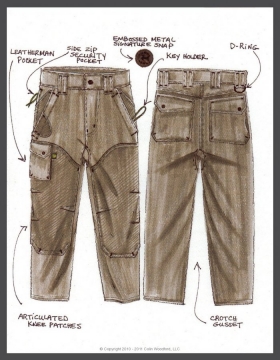 LEATHERMAN
POCKET
SIDE ZIP
SECURITY
POCKET
EMBOSSED METAL
SIGNATURE SNAP
KEY HOLDER
D-RING
ARTICULATED
KNEE PATCHES
CROTCH
GUSSET